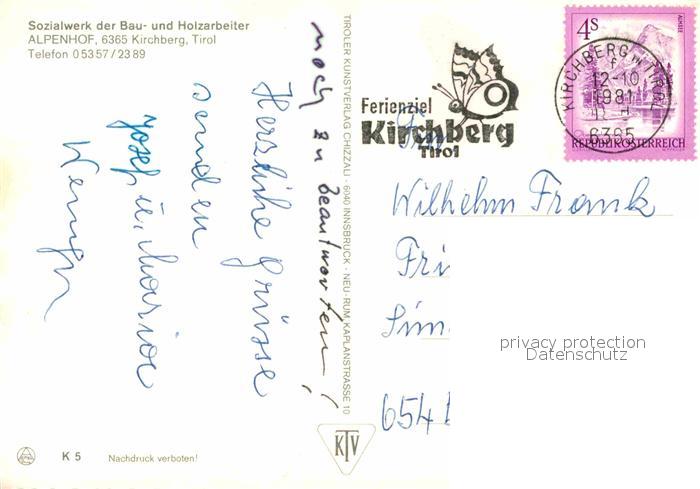 Sozialwerk der Bau- und Holzarbeiter
ALPENHOF, 6365 Kirchberg, Tirol
Telefon 05357/2389
noch zu beantworten!
Herzliche Grüsse
senden
Josef u. Maria
TIROLER KUNSTVERLAG CHIZZALI · 6040 INNSBRUCK - NEU-RUM, KAPLANSTRASSE 10
Ferienziel
Kirchberg
Tirol
4S
ALMSEE
KIRCHBERG IN TIROL
f
12-10
1981
6365
REPUBLIK ÖSTERREICH
Wilhelm Frank
Fri
Sim
6541
privacy protection
Datenschutz
KTV
K 5
Nachdruck verboten!